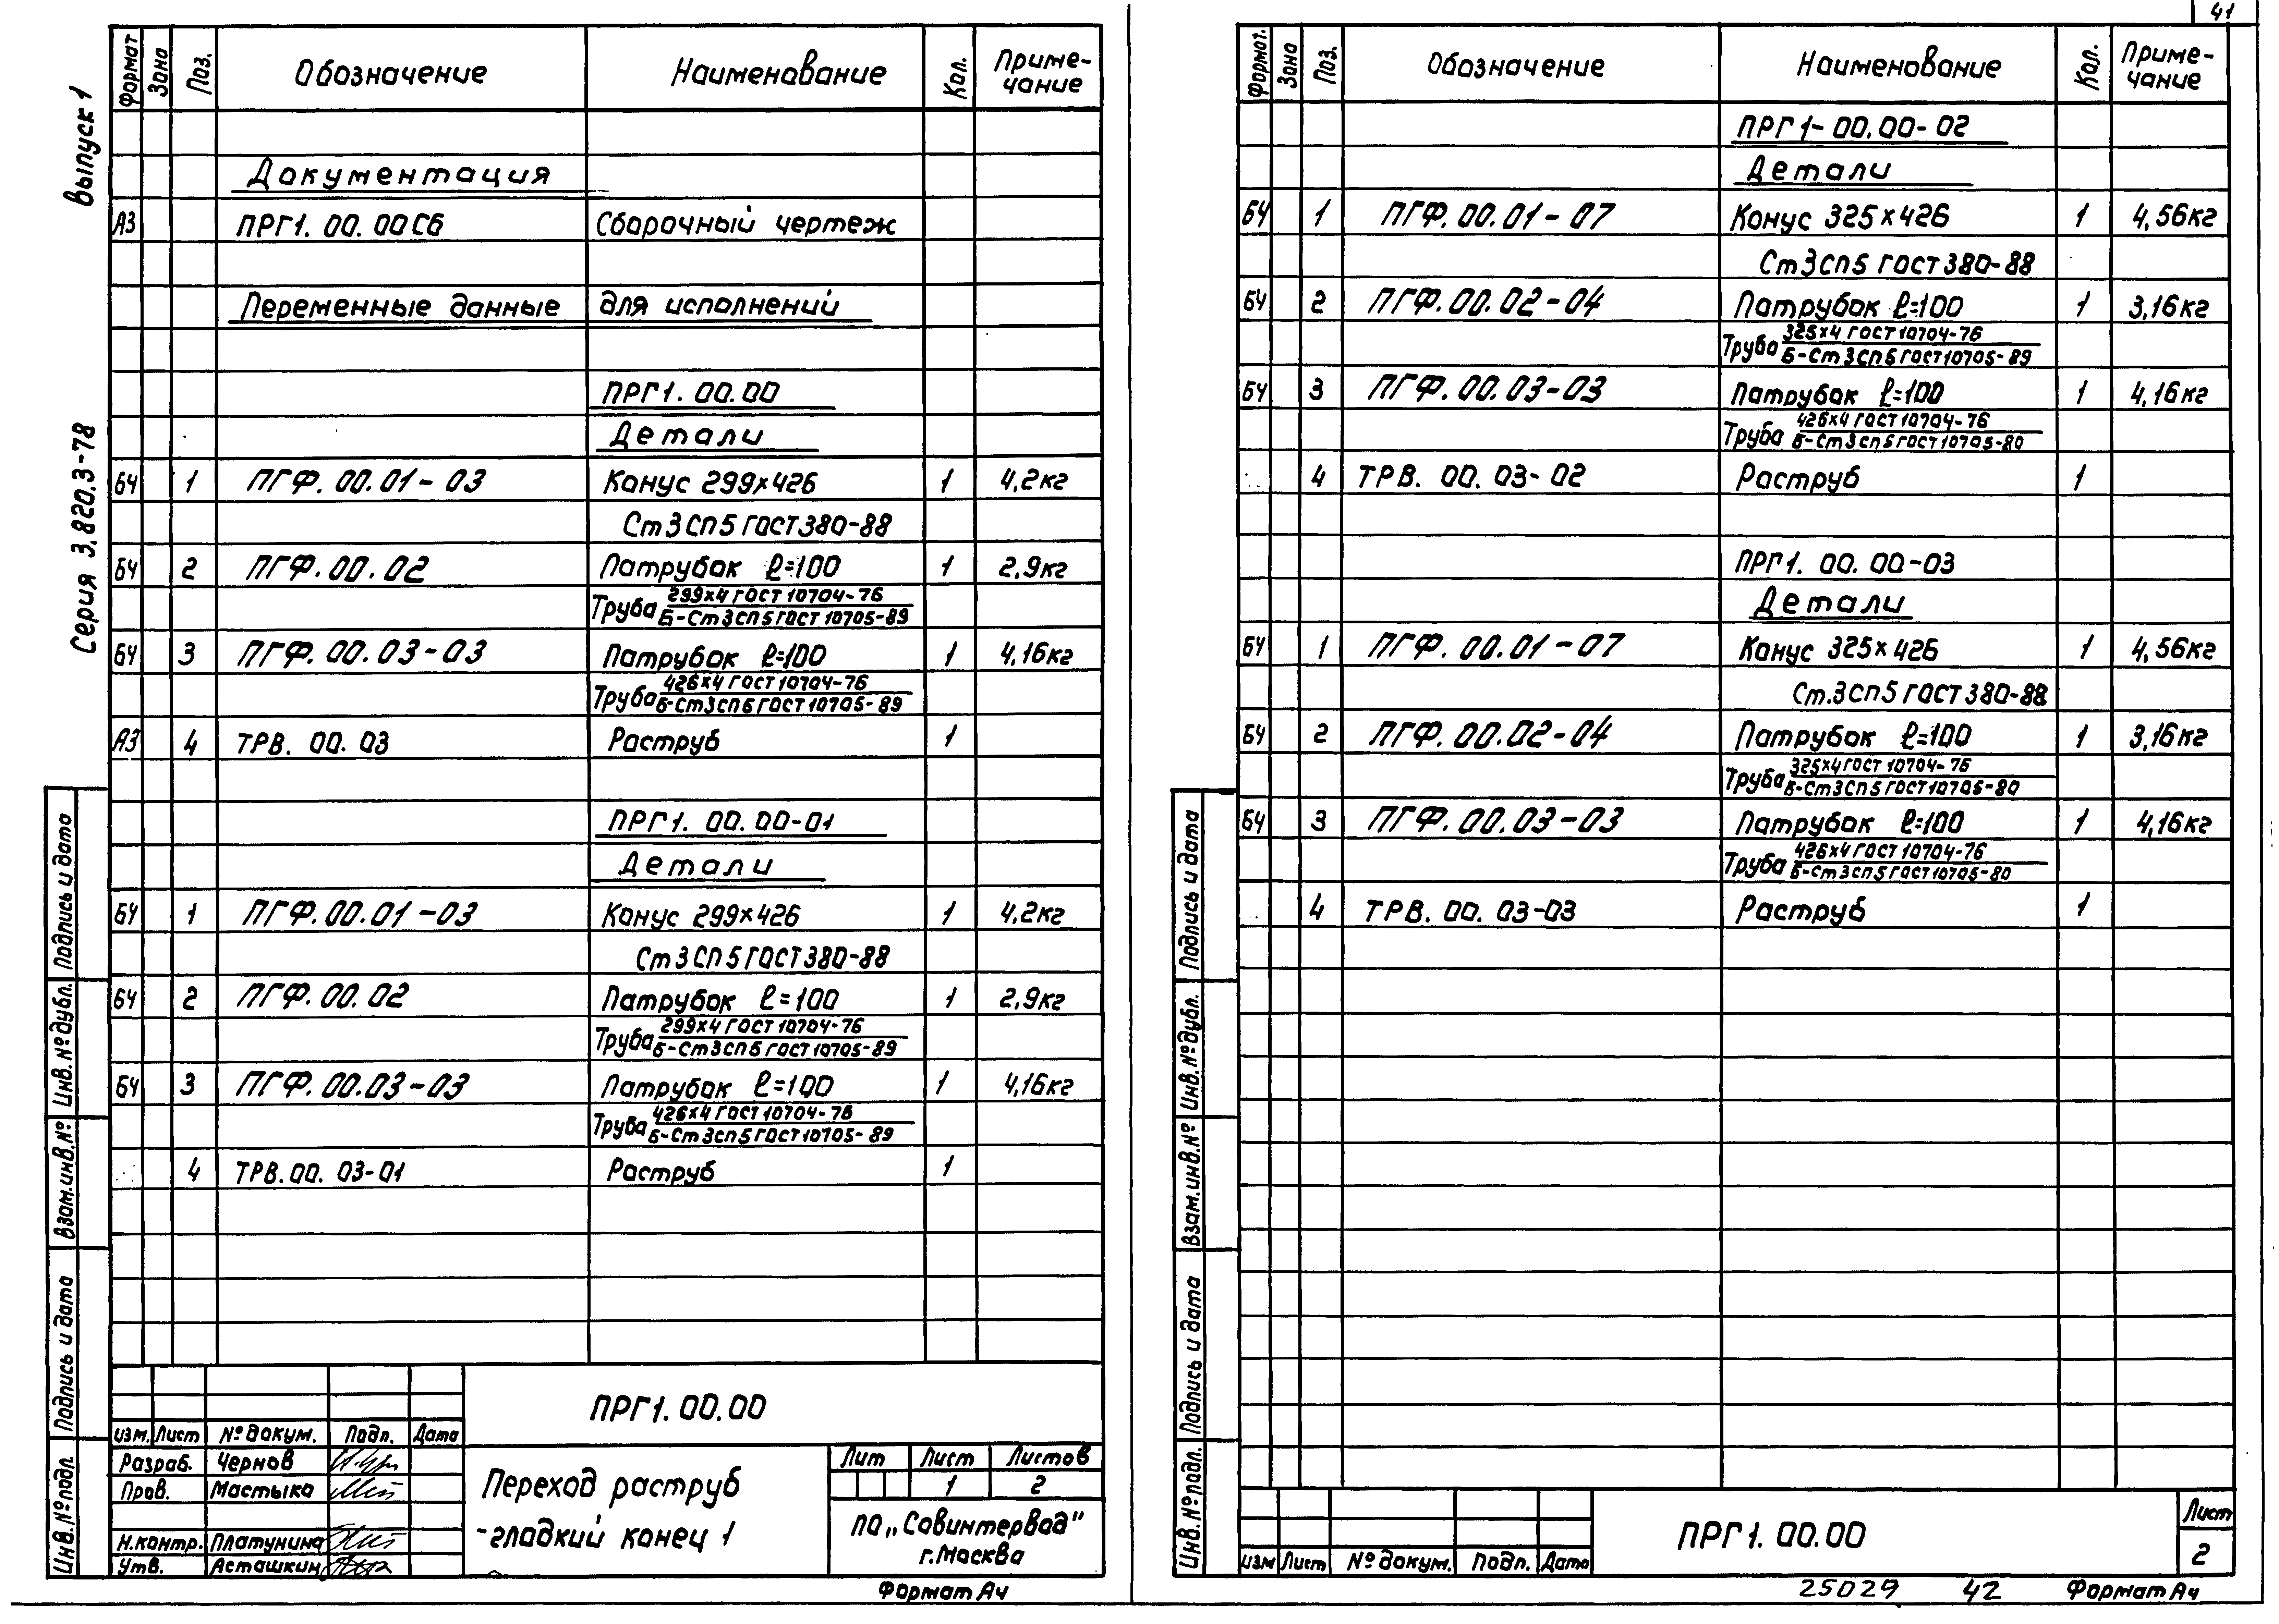 Выпуск 1
Серия 3.820.3-78
Формат Зона Поз. Обозначение Наименование Кол. Приме-
чание
Документация
А3 ПРГ1. 00. 00 СБ Сборочный чертеж
Переменные данные для исполнений
ПРГ1. 00. 00
Детали
БЧ 1 ПГФ. 00. 01-03 Конус 299×426 1 4,2кг
Ст3СП5 ГОСТ380-88
БЧ 2 ПГФ. 00. 02 Патрубок ℓ=100 1 2,9кг
299×4 ГОСТ 10704-76
Труба
Б-Ст3сп5ГОСТ10705-89
БЧ 3 ПГФ. 00. 03-03 Патрубок ℓ=100 1 4,16кг
426×4 ГОСТ 10704-76
Труба
Б-Ст3сп5ГОСТ10705-89
А3 4 ТРВ. 00. 03 Раструб 1
ПРГ1. 00. 00-01
Детали
БЧ 1 ПГФ. 00. 01-03 Конус 299×426 1 4,2кг
Ст3СП5ГОСТ380-88
БЧ 2 ПГФ. 00. 02 Патрубок ℓ=100 1 2,9кг
299×4 ГОСТ 10704-76
Труба
Б-Ст3сп5ГОСТ10705-89
БЧ 3 ПГФ. 00.03-03 Патрубок ℓ=100 1 4,16кг
426×4 ГОСТ 10704-76
Труба
Б-Ст3сп5ГОСТ10705-89
4 ТРВ. 00. 03-01 Раструб 1
Подпись и дата
Инв.№дубл.
Взам.инв.№
Подпись и дата
Инв.№подл.
ПРГ1. 00.00
изм. Лист №докум. Подп. Дата
Разраб. Чернов
Пров. Мастыко
Н.контр. Платунина
Утв. Асташкин
Переход раструб
-гладкий конец 1
Лит Лист Листов
1 2
ПО„Совинтервод"
г.Москва
Формат А4
41
Формат. Зона Поз. Обозначение Наименование Кол. Приме-
чание
ПРГ1-00.00-02
Детали
БЧ 1 ПГФ. 00. 01-07 Конус 325×426 1 4,56кг
Ст3СП5 ГОСТ380-88
БЧ 2 ПГФ. 00. 02-04 Патрубок ℓ=100 1 3,16кг
325×4 ГОСТ 10704-76
Труба
Б-Ст3сп5ГОСТ10705-89
БЧ 3 ПГФ. 00. 03-03 Патрубок ℓ=100 1 4,16кг
426×4 ГОСТ 10704-76
Труба
Б-Ст3сп5ГОСТ10705-80
4 ТРВ. 00. 03-02 Раструб 1
ПРГ1. 00. 00-03
Детали
БЧ 1 ПГФ. 00. 01-07 Конус 325×426 1 4,56кг
Ст.3сп5ГОСТ380-88
БЧ 2 ПГФ. 00.02-04 Патрубок ℓ=100 1 3,16кг
325×4ГОСТ 10704-76
Труба
Б-Ст3сп5ГОСТ10705-80
БЧ 3 ПГФ. 00.03-03 Патрубок ℓ=100 1 4,16кг
426×4 ГОСТ 10704-76
Труба
Б-Ст3сп5ГОСТ10705-80
4 ТРВ. 00. 03-03 Раструб 1
Подпись и дата
Инв.№дубл.
Взам.инв.№
Подпись и дата
Инв.№подл.
изм Лист №докум. Подп. Дата
ПРГ1. 00.00
Лист
2
25029 42 Формат А4